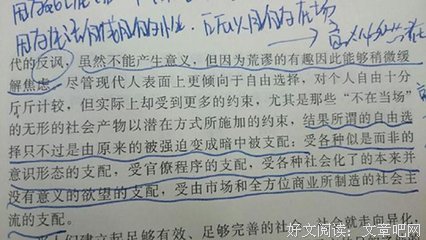 代的反讽，虽然不能产生意义，但因为荒谬的有趣因此能够稍微缓
解焦虑。尽管现代人表面上更倾向于自由选择，对个人自由十分
斤斤计较，但实际上却受到更多的约束，尤其是那些“不在当场”
的无形的社会产物以潜在方式所施加的约束，结果所谓的自由选
择只不过是由原来的被强迫变成暗中被支配：受各种似是而非的
意识形态的支配，受官僚程序的支配，受各种社会化了的本来并
没有意义的欲望的支配，受由市场和全方位商业所制造的社会主
流的支配。
人们建立起足够有效、足够完善的社会，社会就走向异化，
好文阅读：文章吧网